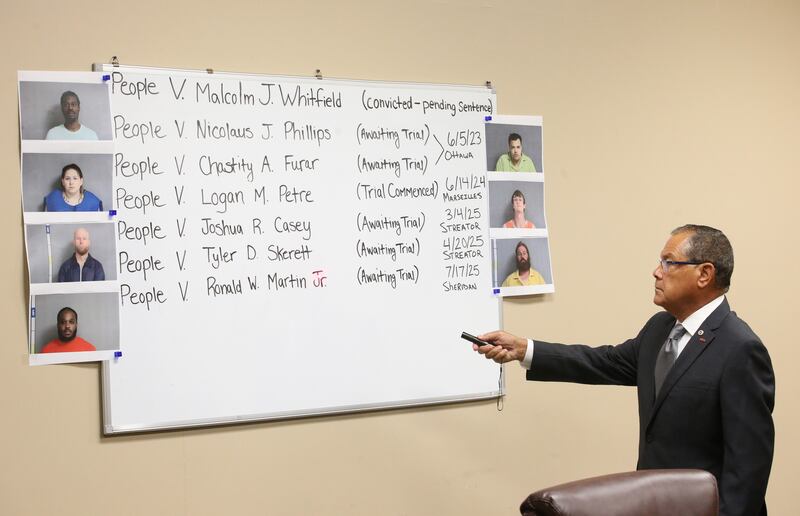 People V. Malcolm J. Whitfield (convicted - pending Sentence)
People V. Nicolaus J. Phillips (Awaiting Trial) 6/5/23 Ottawa
People V. Chastity A. Furar (Awaiting Trial)
People V. Logan M. Petre (Trial Commenced) 6/14/24 Marseilles
People V. Joshua R. Casey (Awaiting Trial) 3/4/25 Streator
People V. Tyler D. Skerett (Awaiting Trial) 4/20/25 Streator
People V. Ronald W. Martin Jr. (Awaiting Trial) 7/17/25 Sheridan